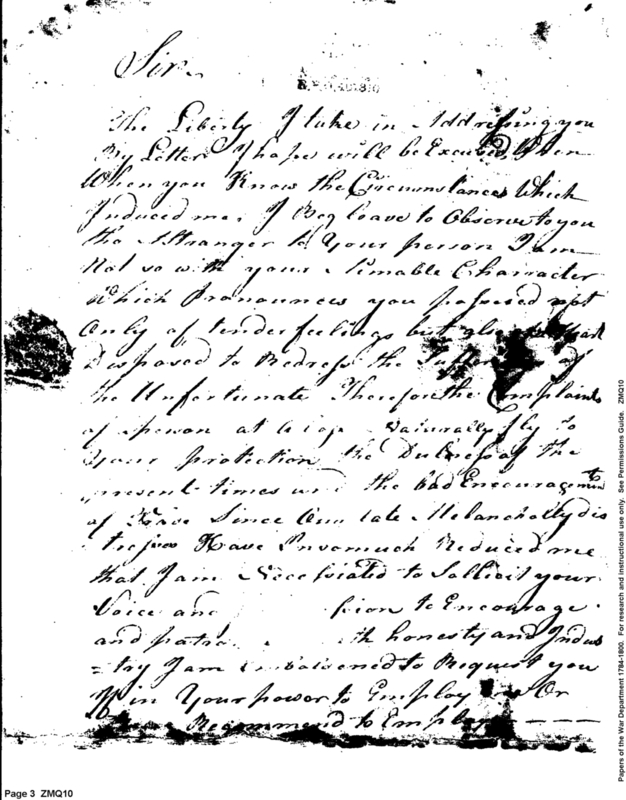 Sir,
The Liberty I take in Addressing you
By Letter I hope will be Excused When
When you Know the Circumstances Which
Induced me, I Beg leave to Observe to you
tho A Stranger to Your person I am
Not so with your Charracter
Which Pronounces you possessed not
Only of tender feelings but also
Disposed to Redress the of
the Unfortunate Therefore the Complaints
of person at Naturally fly to
Your protection the Dulness of the
present times and the bad Encouragement
of Since Our late Melanchally dis
tresses Have Insomuch Reduced me
that I am Necessiated to Sollicit your
Voice and to Encourage
and honesty and Indus
=try I am Emboldened to Request you
If in Your power to Employ me Or
Recommend to Employ ----
Page 3 ZMQ10
Papers of the War Department 1784-1800. For research and instructional use only. See Permissions Guide. ZMQ10